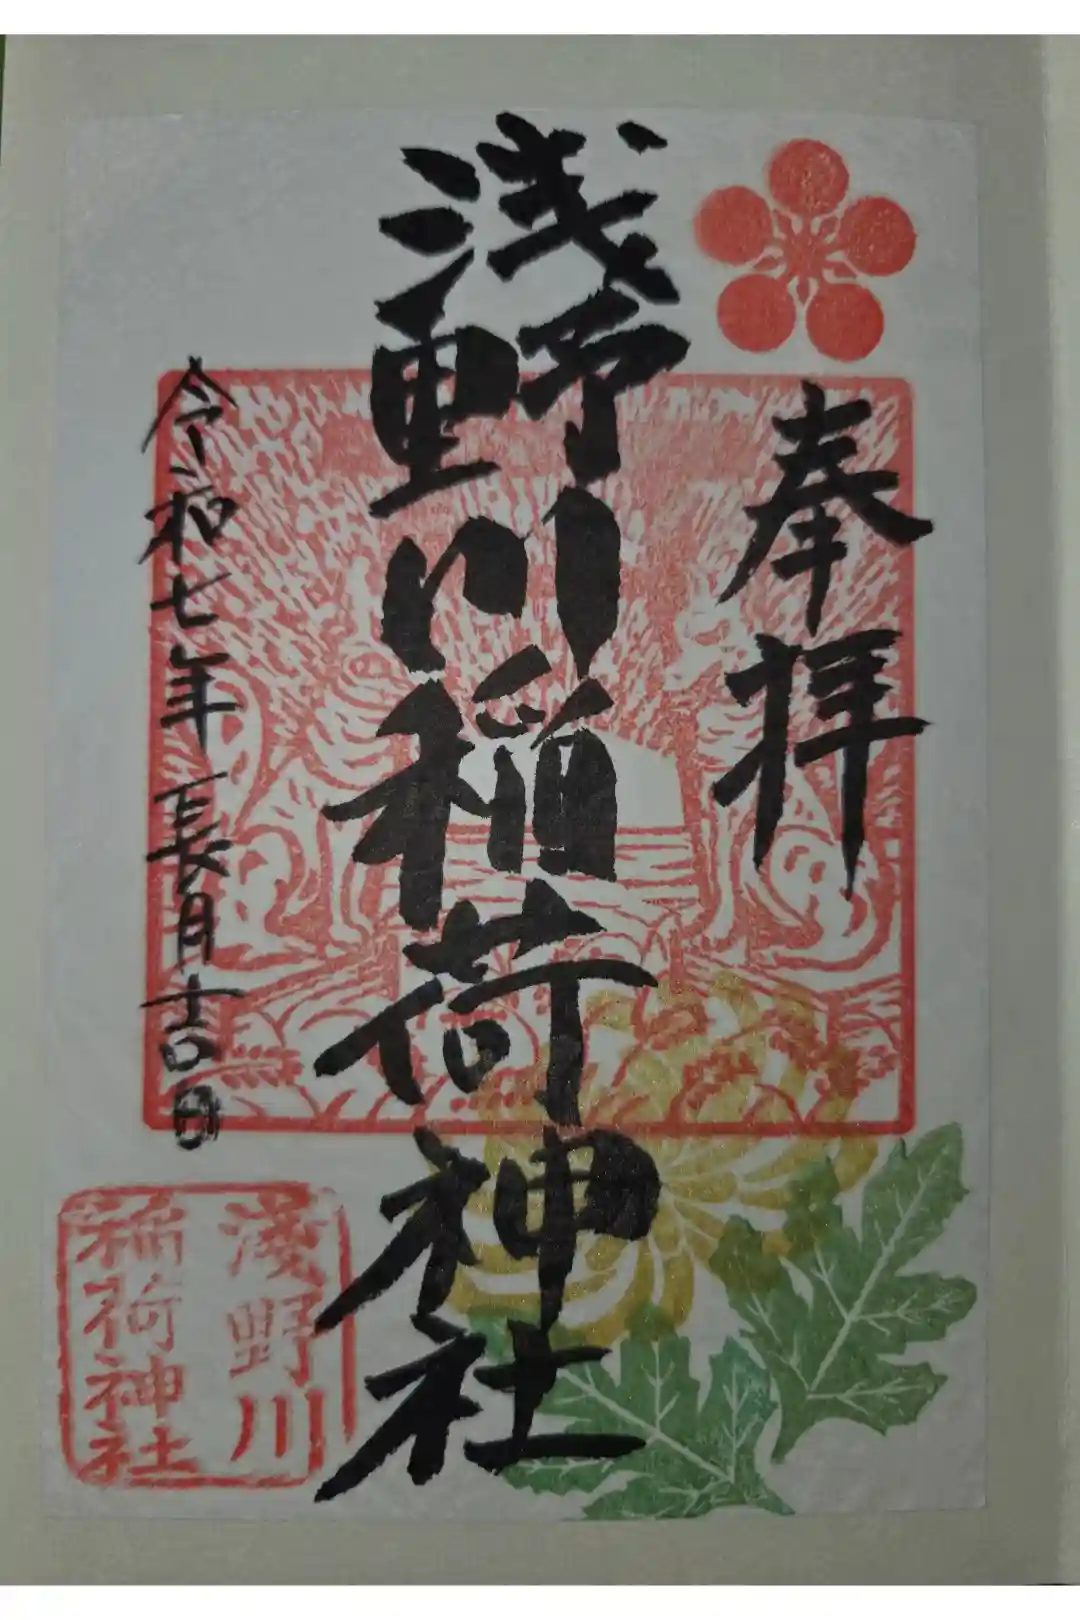 奉拝
浅野川稲荷神社
令和七年長月十日
淺野川
稲荷神社